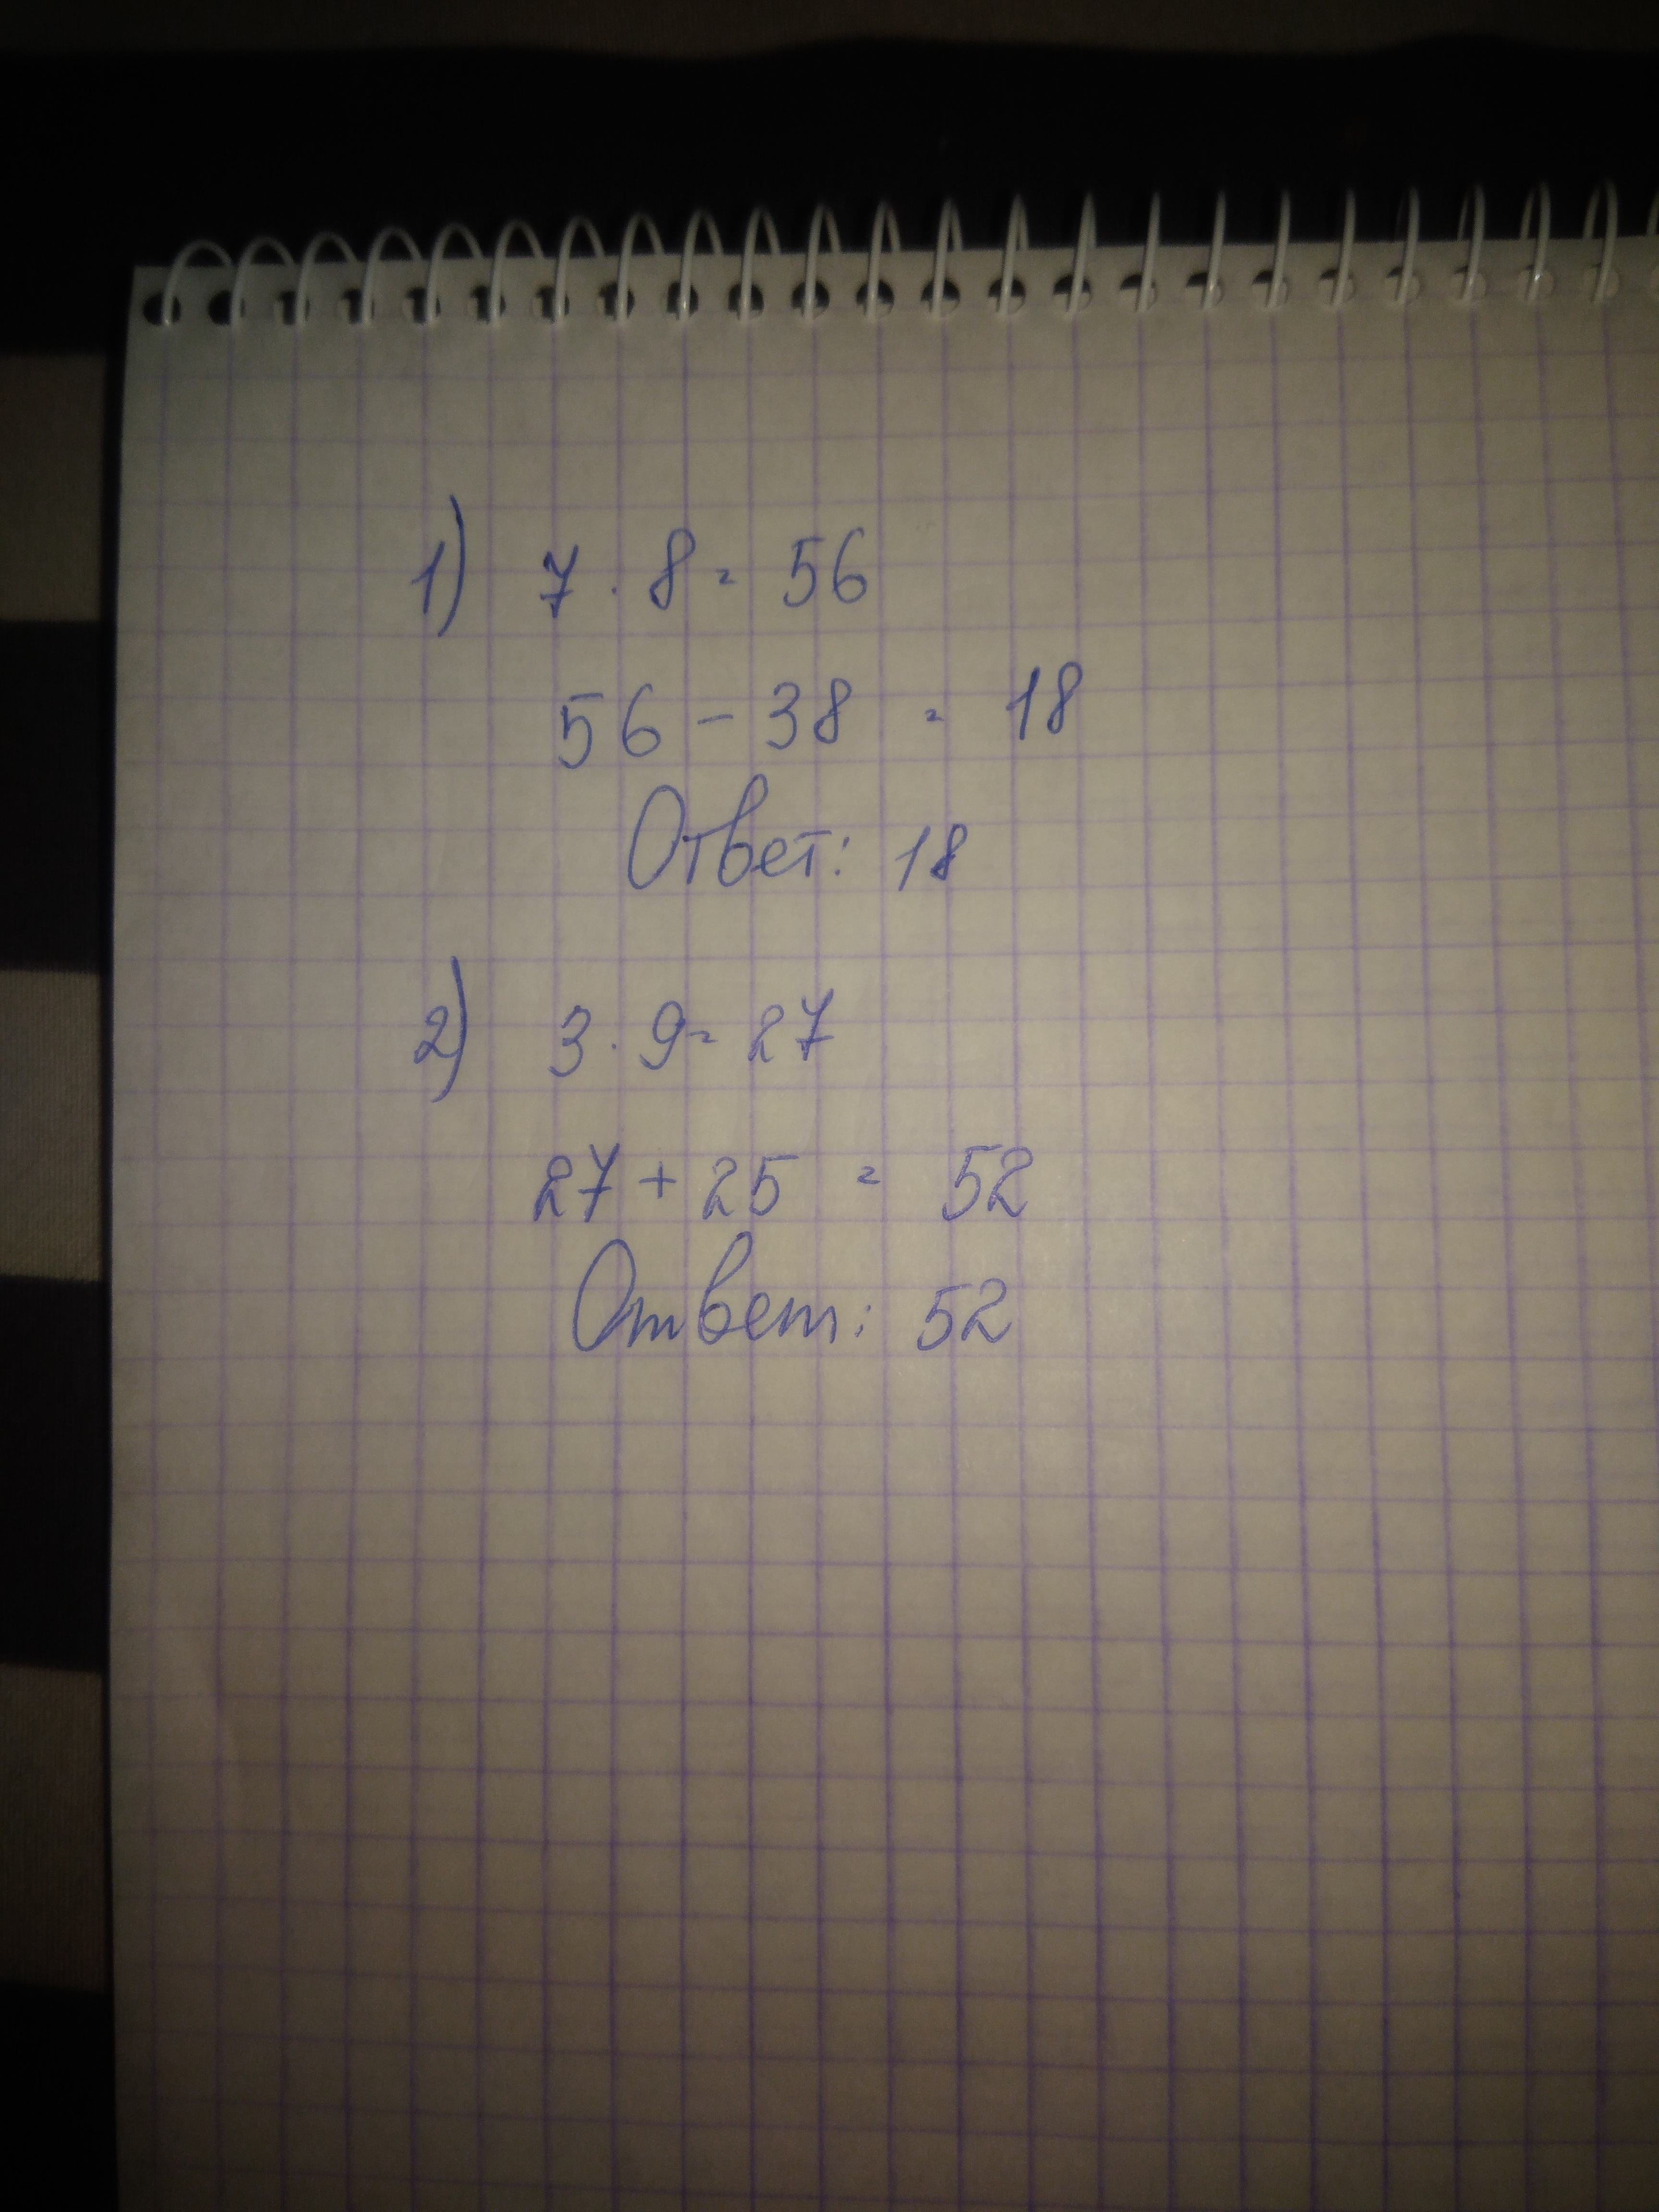 1) 7 · 8 = 56
56 - 38 = 18
Ответ: 18
2) 3 · 9 = 27
27 + 25 = 52
Ответ: 52